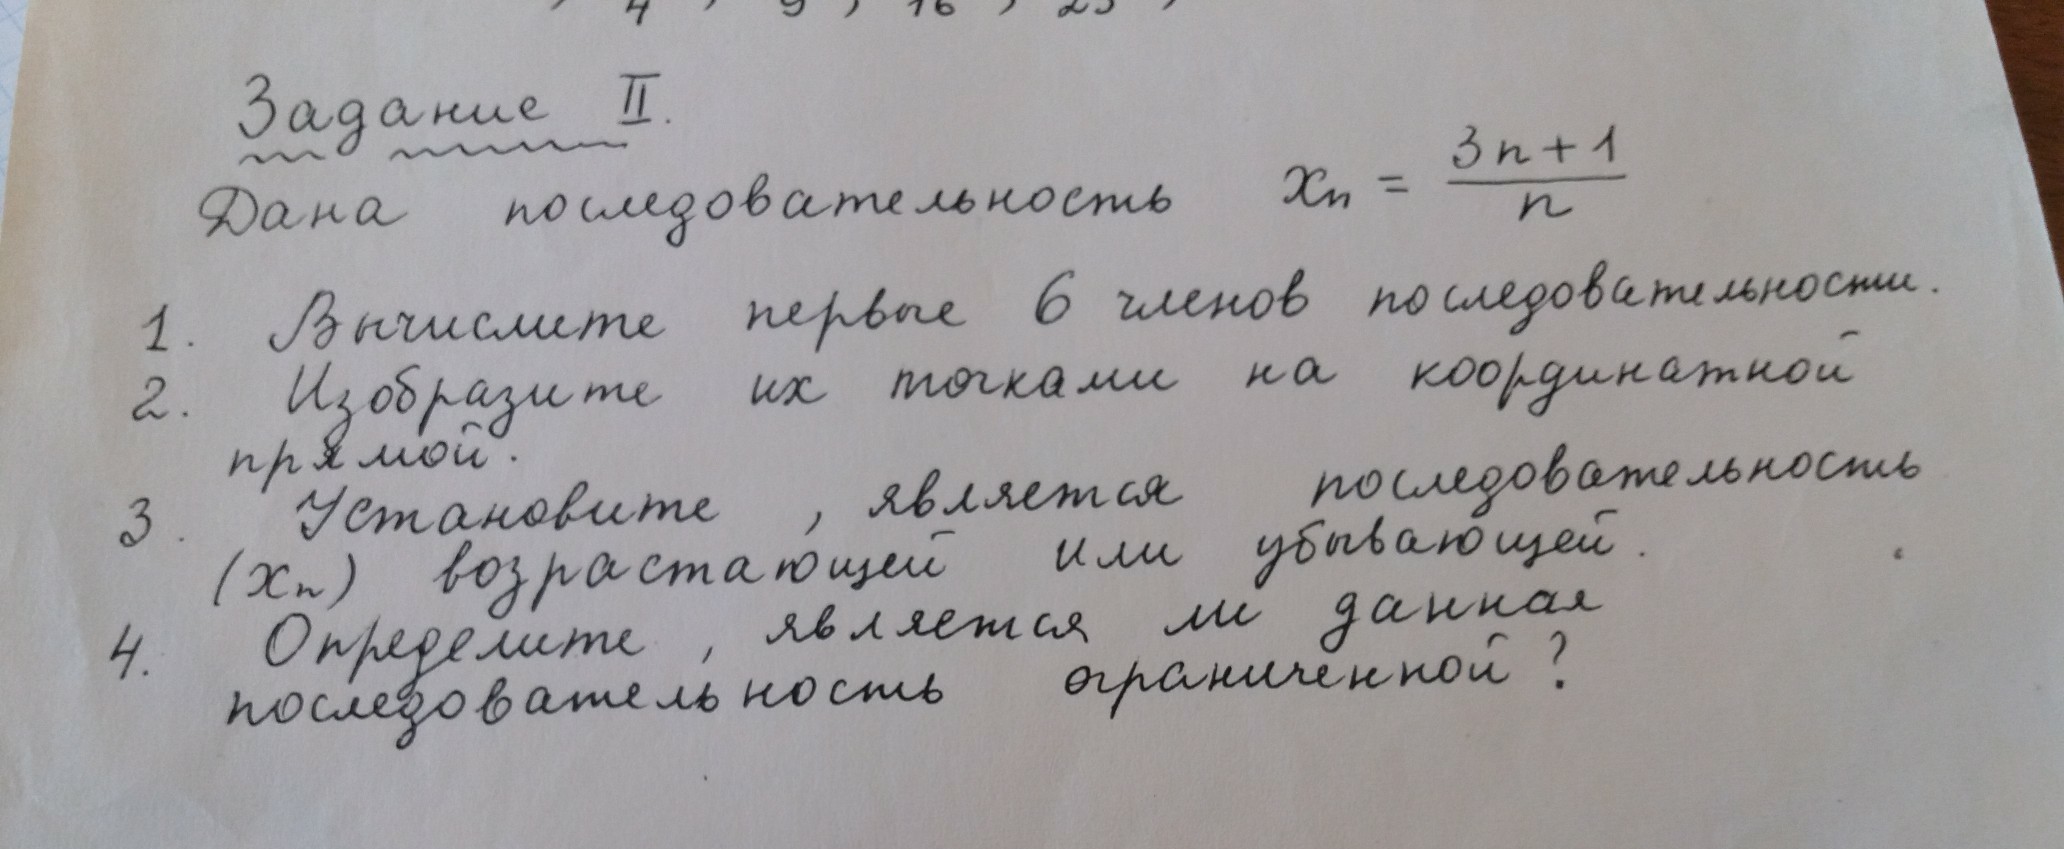 4 , 9 , 16 , 25 ,
Задание II.
Дана последовательность xₙ = (3n+1)/n
1. Вычислите первые 6 членов последовательности.
2. Изобразите их точками на координатной
прямой.
3. Установите , является последовательность
(xₙ) возрастающей или убывающей.
4. Определите , является ли данная
последовательность ограниченной?